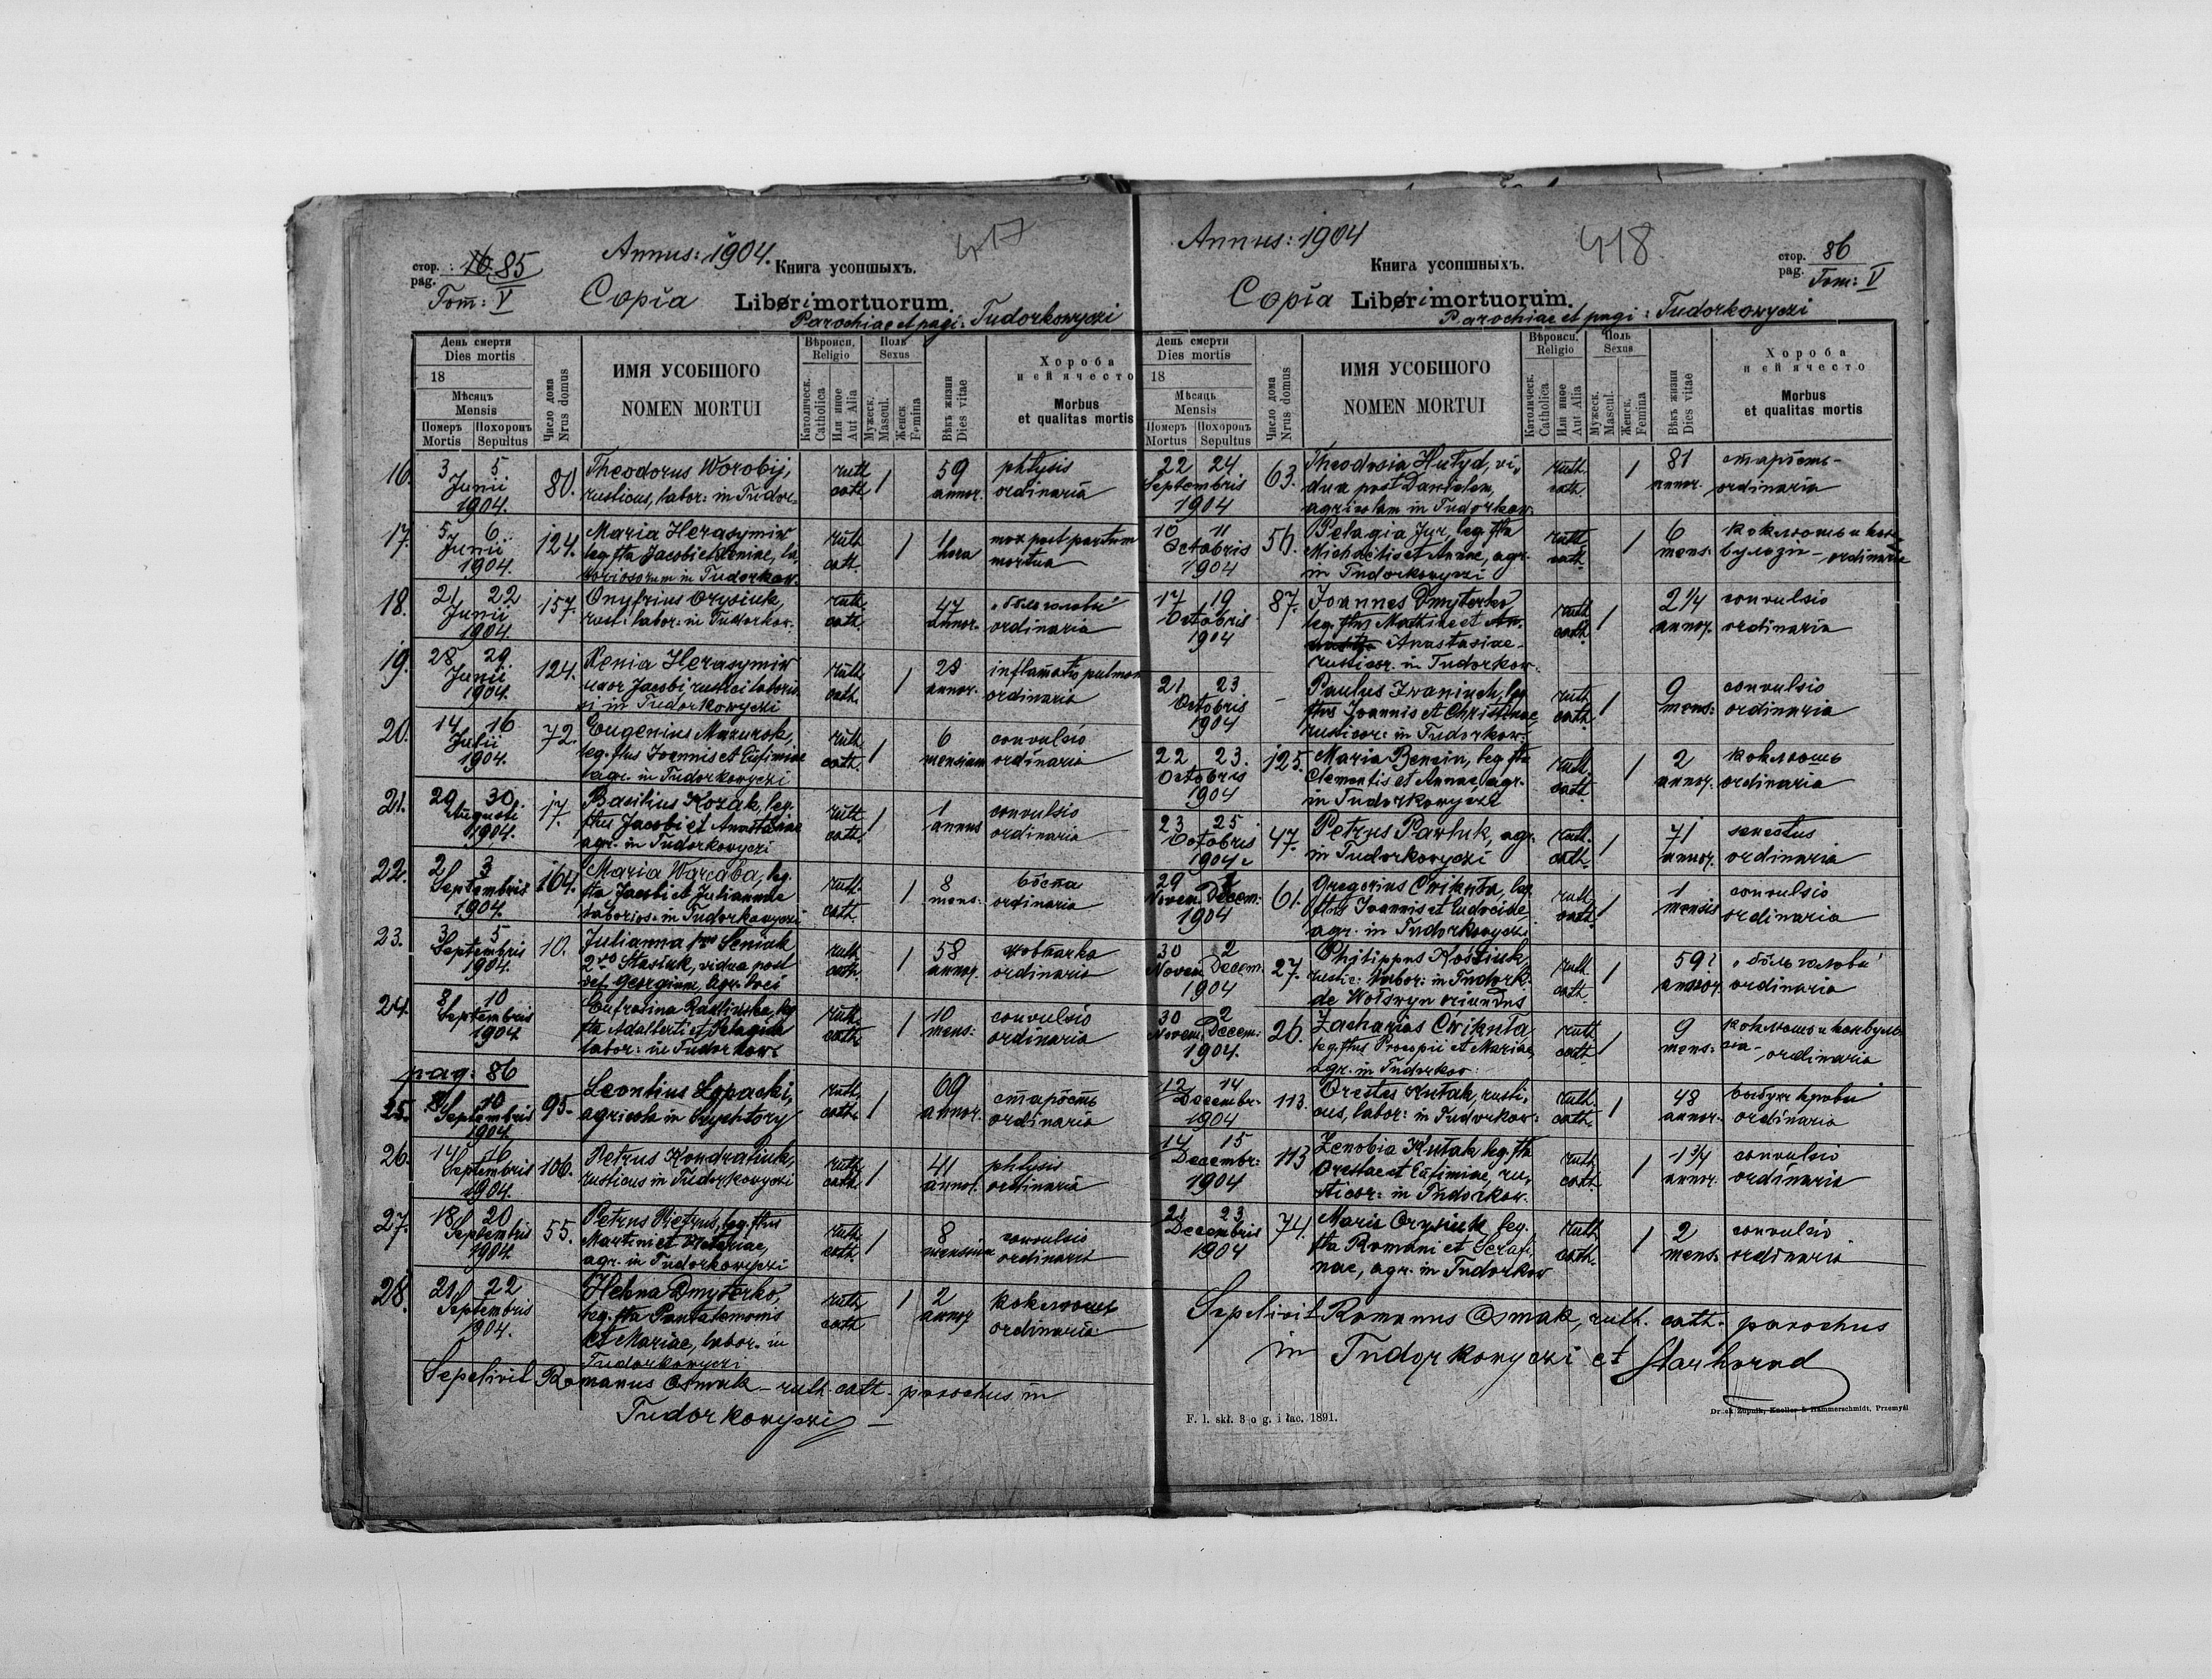 Annus: 1904.
417
стор. 16. 85
pag.
Tom: V
Книга усопшыхъ.
Copia Libri mortuorum.
Parochiae et pagi: Tudorkowyczi
День смерти
Dies mortis
18
Мѣсяцъ
Mensis
Померъ Похоронъ
Mortis Sepultus
Число дома
Nrus domus
ИМЯ УСОБШОГО
NOMEN MORTUI
Вѣроисп.
Religio
Католическ.
Catholica
Или иное
Aut Alia
Полъ
Sexus
Мужеск.
Mascul.
Женск
Femina
Вѣкъ жизни
Dies vitae
Хороба
и еи ячесто
Morbus
et qualitas mortis
16. 3 5 80. Theodorus Worobij, ruth 1 59 phtysis
Junii rusticus, labor: in Tudor- cath annor. ordinaria
1904.
17. 5 6. 124. Maria Herasymiw ruth 1 1 mox post partum
Junii leg. flia Jacobi et Xeniae, la- cath. hora mortua
1904. boriosorum in Tudorkow.
18. 21 22 157. Onyfrius Orysiuk, ruth. 47 „боль головы"
Junii rust: labor: in Tudorkow. cath. annor. ordinaria
1904.
19. 28 29. 124. Xenia Herasymiw ruth. 1 inflamatio pulmon
Junii uxor Jacobi rustici laborio- cath. annor. ordinaria
1904. si in Tudorkowyczi
20. 14 16 72. Eugenius Mazurok, ruth. 1 6 convulsio
Julii leg. flius Joannis et Eufimiae cath. mensium ordinaria
1904. agr. in Tudorkowyczi
21. 29 30. 17. Basilius Kozak, leg. ruth 1 1 convulsio
Augusti flius Jacobi et Anastasiae cath. annus ordinaria
1904. agr. in Tudorkowyczi
22. 2 3 164. Maria Warcaba, leg. ruth. 1 8 вôспа
Septembris flia Jacobi et Juliannae cath. mens: ordinaria
1904. laborios: in Tudorkowyczi
23. 3 5 10. Julianna Seniuk ruth. 1 58
Septembris 2do Stasiuk, vidua post cath. annor. ordinaria
1904. def. Georgium, agr. loci
24. 8 10 Eufrosina leg. ruth. 1 10 convulsio
Septembris flia Adalberti et Pelagiae cath. mens: ordinaria
1904 labor: in Tudorkow:
pag: 86
25. 10 95. Leontius Lopacki, ruth. 1 69 старôсть
Septembris agricola in cath. annor. ordinaria
1904.
26. 14 16 106. Petrus Kondratiuk, ruth. 1 41 phtysis
Septembris rusticus in Tudorkowyczi cath. annor. ordinaria
1904.
27. 18 20 55. Petrus Pietrus, leg. flius ruth. 1 8 convulsio
Septembris Martini et cath. mensium ordinaria
1904. agr. in Tudorkowyczi
28. 21 22 Helena Dmyterko, ruth. 1 2 коклюшъ
Septembris leg. flia Pantalemonis cath annor ordinaria
1904. et Mariae, labor. in
Tudorkowyczi
Sepelivit Romanus Osmak – ruth. cath. parochus in
Tudorkowyczi –
Annus: 1904
418.
стор. 86
pag.
Tom: V
Книга усопшныхъ.
Copia Libri mortuorum.
Parochiae et pagi: Tudorkowyczi
День смерти
Dies mortis
18
Мѣсяцъ
Mensis
Померъ Похоронъ
Mortus Sepultus
Число дома
Nrus domus
ИМЯ УСОБШОГО
NOMEN MORTUI
Вѣроисп.
Religio
Католическ.
Catholica
Или иное
Aut Alia
Полъ
Sexus
Мужеск.
Mascul.
Женск.
Femina
Вѣкъ жизни
Dies vitae
Хороба
и еи ячесто
Morbus
et qualitas mortis
22 24 63. Theodosia Hułyd, vi- ruth. 1 81 старôсть-
Septembris dua post cath. annor. ordinaria
1904 agricolam in Tudorkow.
10 11 56. Pelagia Jyr, leg. flia ruth 1 6 коклюшъ и кон-
Octobris Michaelis et Annae, agr. cath. mens: вулзіи – ordinaria
1904 in Tudorkowyczi
17 19 87. Joannes Dmyterko ruth 1 2 1/4 convulsio
Octobris leg. flius Matthiae et cath. annor. ordinaria
1904 Anastasiae-
rusticor. in Tudorkow.
21 23 – Paulus Iwaniuch, leg. ruth. 1 9 convulsio
Octobris flius Joannis et Christinae, cath. mens: ordinaria
1904 rusticor: in Tudorkow:
22 23. 125. Maria Bencin, leg. flia ruth. 1 2 коклюшъ
Octobris Clementis et Annae, agr. cath. annor. ordinaria
1904 in Tudorkowyczi
23 25 47. Petrus Pawluk, agr. ruth. 1 71 senectus
Octobris in Tudorkowyczi cath. annor. ordinaria
1904
29 1 61. Gregorius Cwiknła, leg. ruth. 1 1 convulsio
Novem. Decem. flius Joannis et Eudociae, cath. mensis ordinaria
1904 agr. in Tudorkowyczi
30 2 27. Philippus Kostiuk, ruth. 1 59? „боль головы"
Novem. Decem. rustic: labor: in Tudork. cath. annor. ordinaria
1904 de Wołswyn oriundus
30 2 26. Zacharias Cwiknła ruth. 1 9 коклюшъ и конвул-
Novem. Decem: leg. flius Procopii et Mariae, cath mens: зіи – ordinaria
1904. agr. in Tudorkow:
12 14 113. Orestes Kutak, rusti- ruth. 1 48 выбухъ крови
Decembr. cus, labor: in Tudorkow: cath. annor. ordinaria
1904
14 15 113 Zenobia Kutak leg. flia ruth. 1 1 3/4 convulsio
Decembr: Orestae et Eufimiae, ru- cath. annor. ordinaria
1904 sticor: in Tudorkow.
21 23 74. Maria Orysiuk leg. ruth 1 2 convulsio
Decembris flia Romani et Serafi- cath. mens. ordinaria
1904 nae, agr. in Tudorkow
Sepelivit Romanus Osmak, ruth. cath. parochus
in Tudorkowyczi et Starhorod
F. l. skł. 3 o g. i łac. 1891.
Druck Żupnik, Knoller & Hammerschmidt, Przemyśl